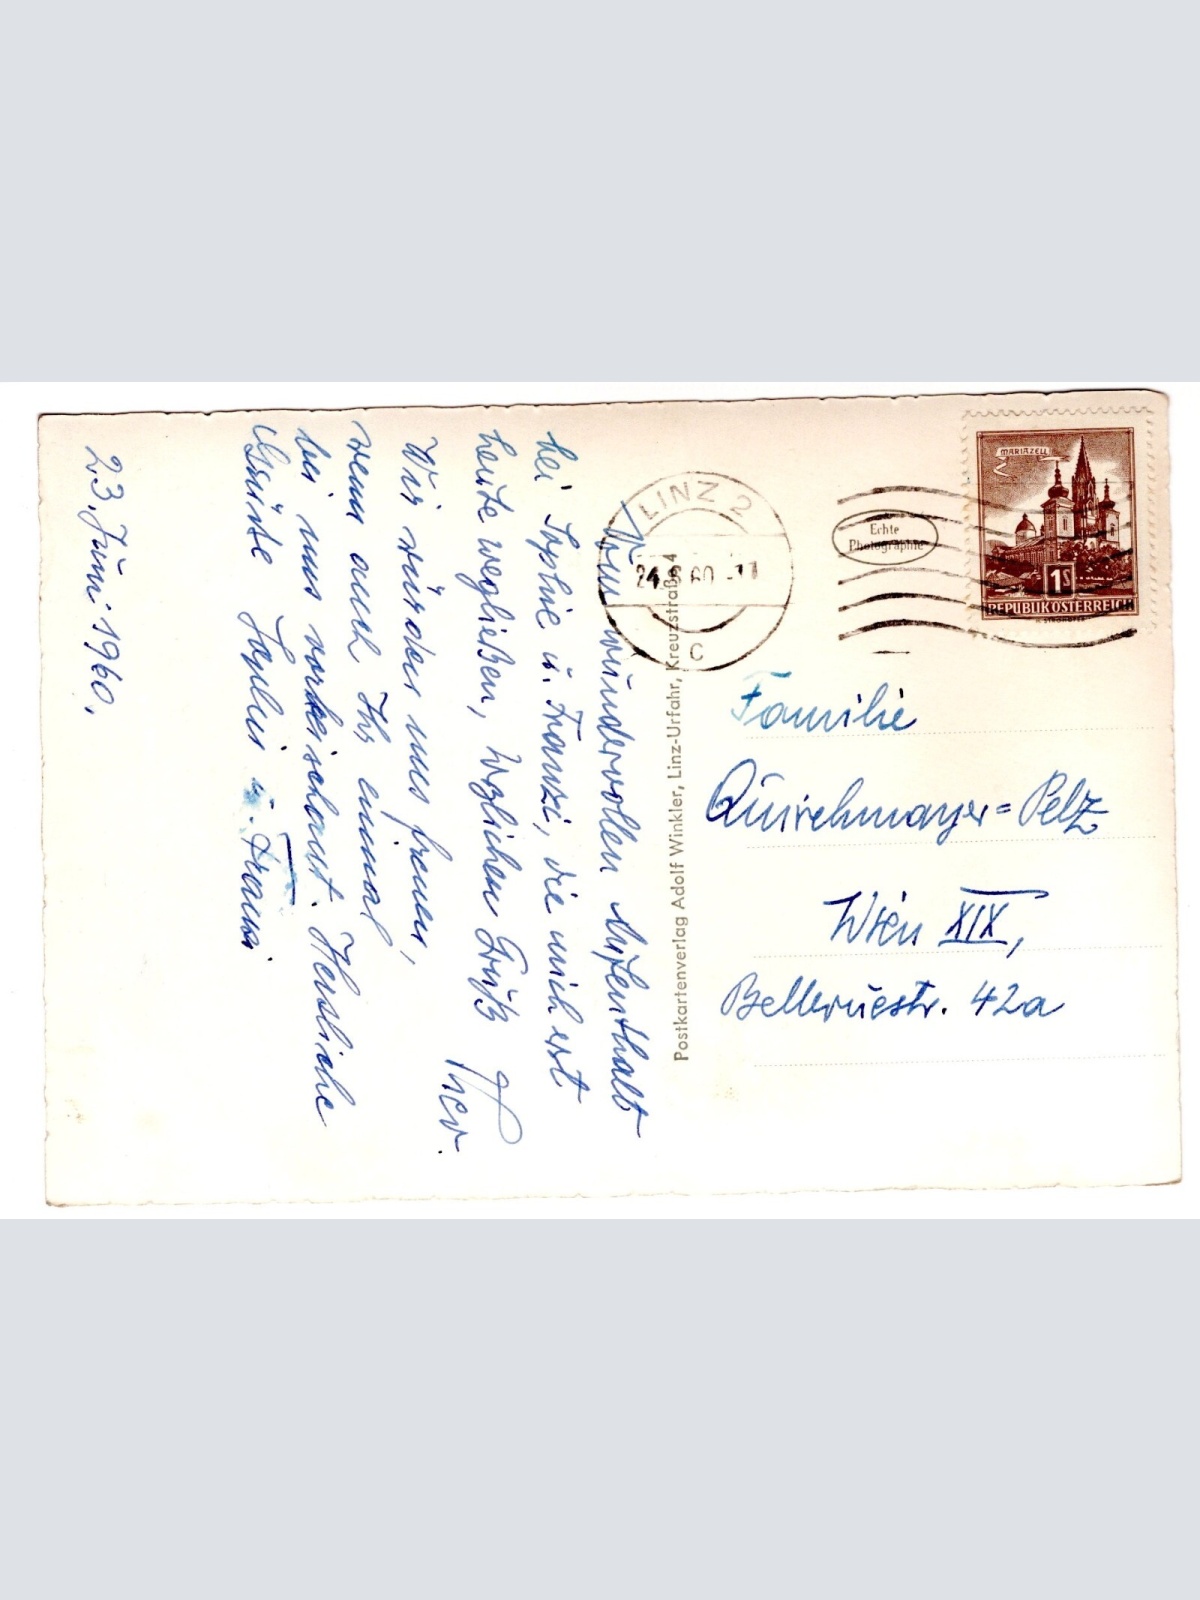 Vom wundervollen Aufenthalt
bei Sophie u. Franzi, die mich erst
heute wegließen, herzlichen Gruß
Wir würden uns freuen,
wenn auch Ihr einmal
bei uns vorbeischaut. Herzliche
Grüße Sophie u. Franzi
23. Juni 1960.
Postkartenverlag Adolf Winkler, Linz-Urfahr, Kreuzstraße 4
LINZ 2
24. 6. 60 - 17
c
Echte
Photographie
MARIAZELL
1S
REPUBLIK ÖSTERREICH
Familie
Quirchmayer=Pelz
Wien XIX,
Bellevuestr. 42a